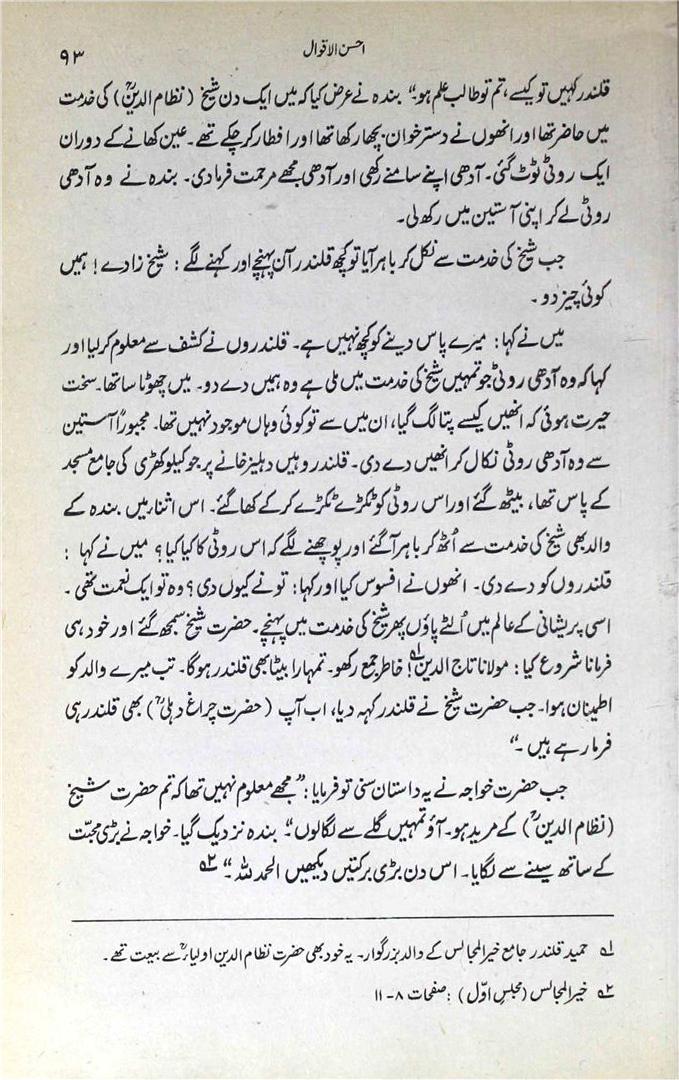 احسن الاقوال
۹۳
قلندر کہیں تو کیسے، تم تو طالب علم ہو۔“ بندہ نے عرض کیا کہ میں ایک دن شیخ (نظام الدینؒ) کی خدمت
میں حاضر تھا اور انھوں نے دسترخوان بچھا رکھا تھا اور افطار کر چکے تھے۔ عین کھانے کے دوران
ایک روٹی ٹوٹ گئی۔ آدھی اپنے سامنے رکھی اور آدھی مجھے مرحمت فرما دی۔ بندہ نے وہ آدھی
روٹی لے کر اپنی آستین میں رکھ لی۔
جب شیخ کی خدمت سے نکل کر باہر آیا تو کچھ قلندر آن پہنچے اور کہنے لگے : شیخ زادے! ہمیں
کوئی چیز دو ۔
میں نے کہا : میرے پاس دینے کو کچھ نہیں ہے۔ قلندروں نے کشف سے معلوم کر لیا اور
کہا کہ وہ آدھی روٹی جو تمہیں شیخ کی خدمت میں ملی ہے وہ ہمیں دے دو۔ میں چھوٹا سا تھا۔ سخت
حیرت ہوئی کہ انھیں کیسے پتا لگ گیا، ان میں سے تو کوئی وہاں موجود نہیں تھا۔ مجبوراً آستین
سے وہ آدھی روٹی نکال کر انھیں دے دی۔ قلندر وہیں دہلیز خانے پر جو کیلوکھڑی کی جامع مسجد
کے پاس تھا، بیٹھ گئے اور اس روٹی کو ٹکڑے ٹکڑے کر کے کھا گئے۔ اس اثنا میں بندہ کے
والد بھی شیخ کی خدمت سے اُٹھ کر باہر آ گئے اور پوچھنے لگے کہ اس روٹی کا کیا کیا؟ میں نے کہا :
قلندروں کو دے دی۔ انھوں نے افسوس کیا اور کہا : تو نے کیوں دی؟ وہ تو ایک نعمت تھی۔
اسی پریشانی کے عالم میں اُلٹے پاؤں پھر شیخ کی خدمت میں پہنچے۔ حضرت شیخ سمجھ گئے اور خود ہی
فرمانا شروع کیا : مولانا تاج الدین۱؎! خاطر جمع رکھو۔ تمہارا بیٹا بھی قلندر ہوگا۔ تب میرے والد کو
اطمینان ہوا۔ جب حضرت شیخ نے قلندر کہہ دیا، اب آپ (حضرت چراغ دہلیؒ) بھی قلندر ہی
فرما رہے ہیں ۔“
جب حضرت خواجہ نے یہ داستان سنی تو فرمایا : ”مجھے معلوم نہیں تھا کہ تم حضرت شیخ
(نظام الدینؒ) کے مرید ہو۔ آؤ تمہیں گلے سے لگالوں“۔ بندہ نزدیک گیا۔ خواجہ نے بڑی محبّت
کے ساتھ سینے سے لگایا۔ اس دن بڑی برکتیں دیکھیں الحمد للہ ۔“ ۲؎
۱؎ حمید قلندر جامع خیر المجالس کے والد بزرگوار۔ یہ خود بھی حضرت نظام الدین اولیاءؒ سے بیعت تھے۔
۲؎ خیر المجالس (مجلس اوّل) : صفحات ۸-۱۱